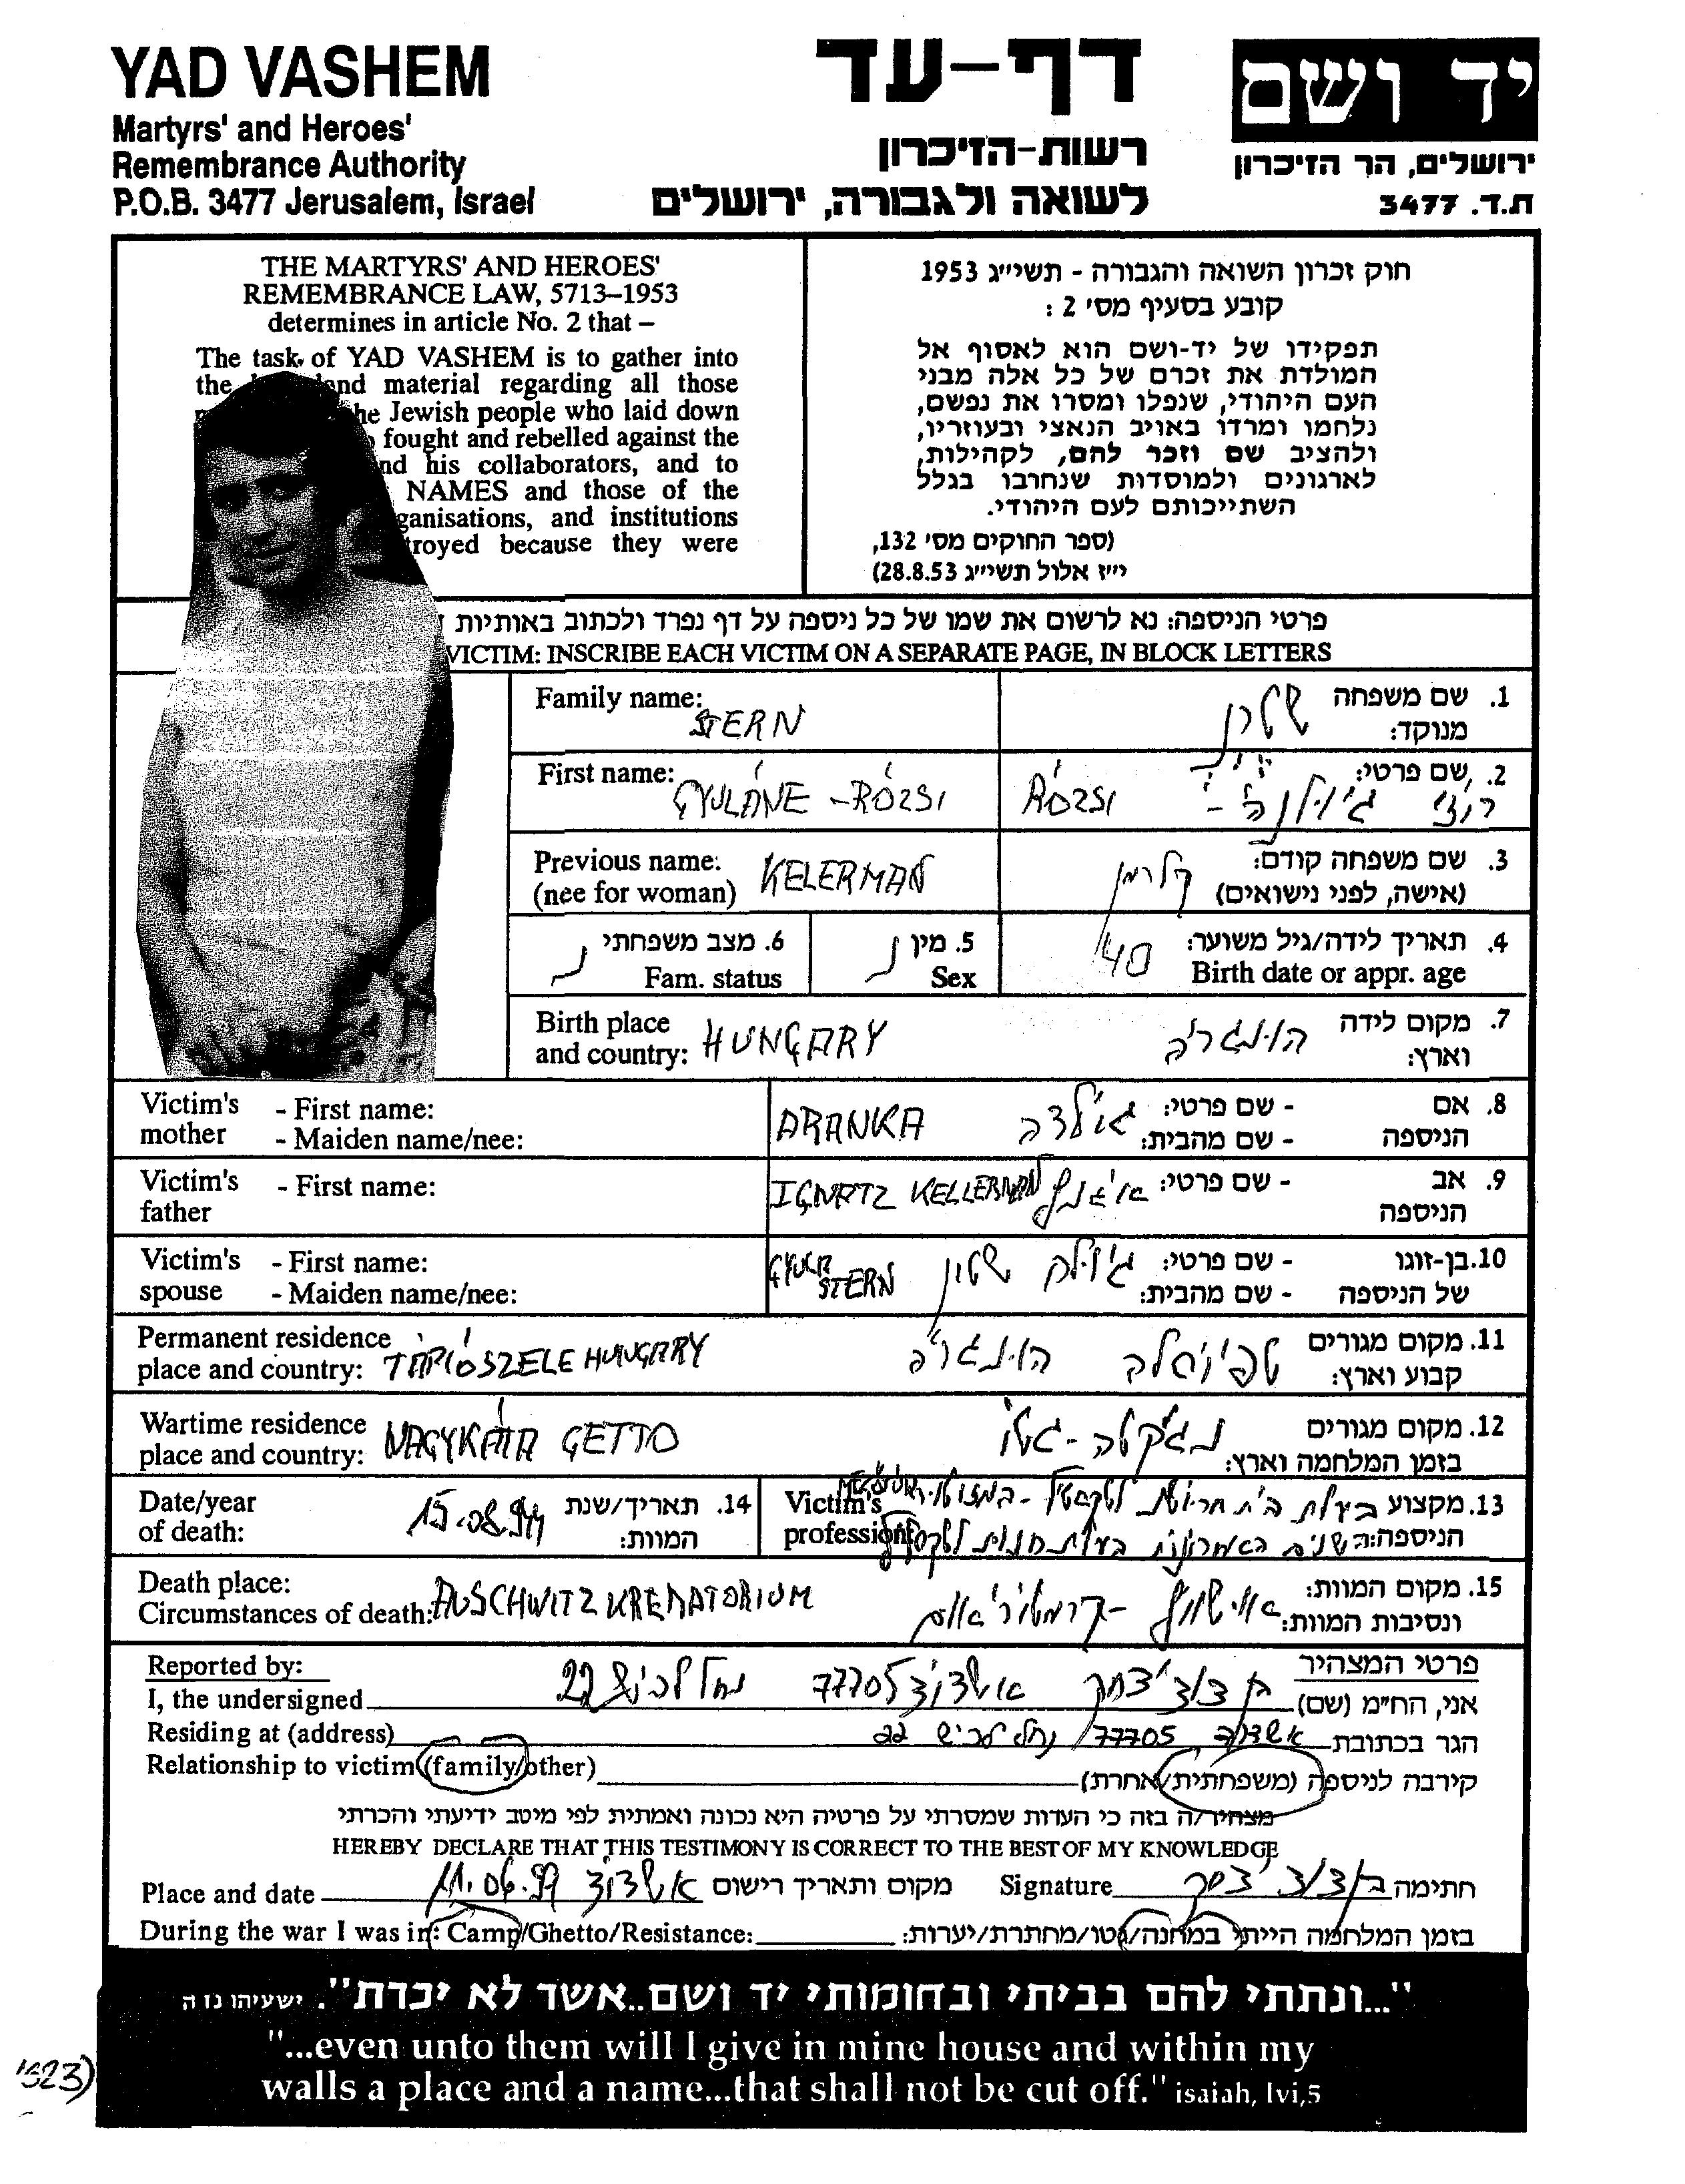 YAD VASHEM
Martyrs' and Heroes'
Remembrance Authority
P.O.B. 3477 Jerusalem, Israel
דף-עד
רשות-הזיכרון
לשואה ולגבורה, ירושלים
יד ושם
ירושלים, הר הזיכרון
ת.ד. 3477
THE MARTYRS' AND HEROES'
REMEMBRANCE LAW, 5713–1953
determines in article No. 2 that –
The task of YAD VASHEM is to gather into
the and material regarding all those
the Jewish people who laid down
fought and rebelled against the
and his collaborators, and to
NAMES and those of the
organisations, and institutions
destroyed because they were
חוק זכרון השואה והגבורה - תשי״ג 1953
קובע בסעיף מס׳ 2 :
תפקידו של יד-ושם הוא לאסוף אל
המולדת את זכרם של כל אלה מבני
העם היהודי, שנפלו ומסרו את נפשם,
נלחמו ומרדו באויב הנאצי ובעוזריו,
ולהציב שם וזכר להם, לקהילות,
לארגונים ולמוסדות שנחרבו בגלל
השתייכותם לעם היהודי.
(ספר החוקים מס׳ 132,
י״ז אלול תשי״ג 28.8.53)
פרטי הניספה: נא לרשום את שמו של כל ניספה על דף נפרד ולכתוב באותיות
VICTIM: INSCRIBE EACH VICTIM ON A SEPARATE PAGE, IN BLOCK LETTERS
Family name: STERN
1. שם משפחה מנוקד: שטרן
First name: GYULÁNÉ - RÓZSI
2. שם פרטי: רוזי גיולנה - RÓZSI
Previous name: (nee for woman) KELERMAN
3. שם משפחה קודם: (אישה, לפני נישואים) קלרמן
4. תאריך לידה/גיל משוער: Birth date or appr. age 40
5. מין Sex נ
6. מצב משפחתי Fam. status נ
Birth place and country: HUNGARY
7. מקום לידה וארץ: הונגריה
Victim's mother - First name: - Maiden name/nee: ARANKA
8. אם הניספה - שם פרטי: - שם מהבית:
Victim's father - First name: IGNATZ KELLERMAN
9. אב הניספה - שם פרטי: איגנץ
Victim's spouse - First name: - Maiden name/nee: GYULA STERN
10. בן-זוגו של הניספה - שם פרטי: - שם מהבית: גיולה שטרן
Permanent residence place and country: TÁPIÓSZELE HUNGARY
11. מקום מגורים קבוע וארץ: טפיוסלה הונגריה
Wartime residence place and country: NAGYKÁTA GETTO
12. מקום מגורים בזמן המלחמה וארץ: נגיקטה - גטו
Date/year of death: 15.08.44
14. תאריך/שנת המוות:
Victim's profession:
13. מקצוע הניספה: בעלת בית חרושת לטקסטיל
בשנים האחרונות בעלת חנות לטקסטיל
Death place: Circumstances of death: AUSCHWITZ KREMATORIUM
15. מקום המוות: ונסיבות המוות: אושוויץ - קרמטוריאום
Reported by:
פרטי המצהיר
I, the undersigned
אני, הח״מ (שם) בן צבי יצחק אשדוד 77705 נחל לכיש 22
Residing at (address)
הגר בכתובת אשדוד 77705 נחל לכיש 22
Relationship to victim (family/other)
קירבה לניספה (משפחתית/אחרת)
מצהיר/ה בזה כי העדות שמסרתי על פרטיה היא נכונה ואמתית לפי מיטב ידיעתי והכרתי
HEREBY DECLARE THAT THIS TESTIMONY IS CORRECT TO THE BEST OF MY KNOWLEDGE
Place and date 11.06.99 אשדוד מקום ותאריך רישום
Signature בן צבי יצחק חתימה
During the war I was in: Camp/Ghetto/Resistance:
בזמן המלחמה הייתי במחנה/גטו/מחתרת/יערות:
"...ונתתי להם בביתי ובחומותי יד ושם..אשר לא יכרת". ישעיהו נו ה
"...even unto them will I give in mine house and within my
walls a place and a name...that shall not be cut off." isaiah, lvi,5